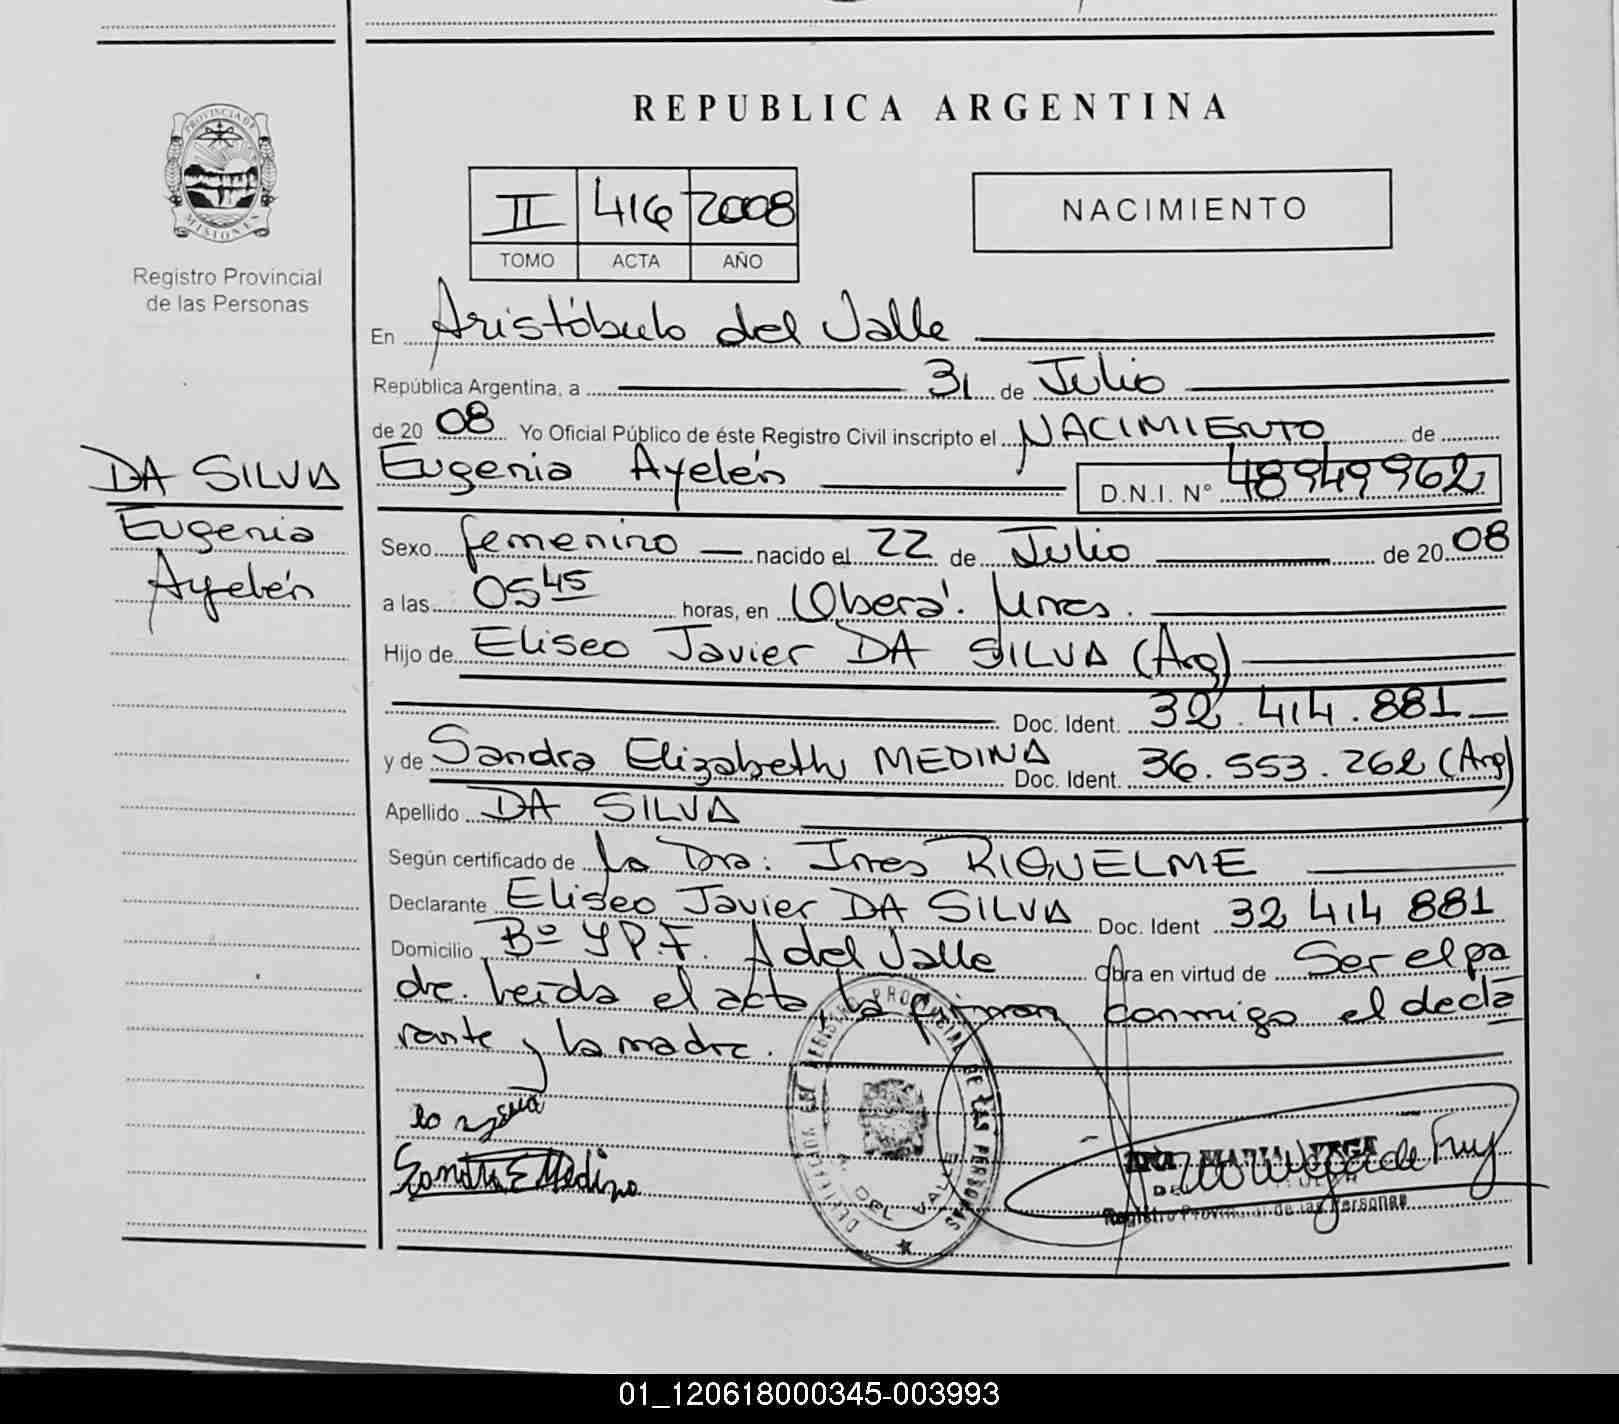 REPUBLICA ARGENTINA
PROVINCIA DE MISIONES
Registro Provincial
de las Personas
II 416 2008
TOMO ACTA AÑO
NACIMIENTO
En Aristóbulo del Valle
República Argentina, a 31 de Julio
de 2008 Yo Oficial Público de éste Registro Civil inscripto el NACIMIENTO de
DA SILVA
Eugenia
Ayelén
Eugenia Ayelén D.N.I. Nº 48949962
Sexo femenino nacido el 22 de Julio de 2008
a las 05 45 horas, en Oberá. Mnes.
Hijo de Eliseo Javier DA SILVA (Arg)
Doc. Ident. 32.414.881
y de Sandra Elizabeth MEDINA Doc. Ident. 36.553.262 (Arg)
Apellido DA SILVA
Según certificado de La Dra: Ines RIQUELME
Declarante Eliseo Javier DA SILVA Doc. Ident 32 414 881
Domicilio Bº Y.P.F. A del Valle Obra en virtud de Ser el pa
dre. Leída el acta, la firman conmigo el decla
rante y la madre.
REGISTRO PROVINCIAL DE LAS PERSONAS
A. DEL VALLE
Sandra E Medina
Registro Provincial de las Personas
01_120618000345-003993